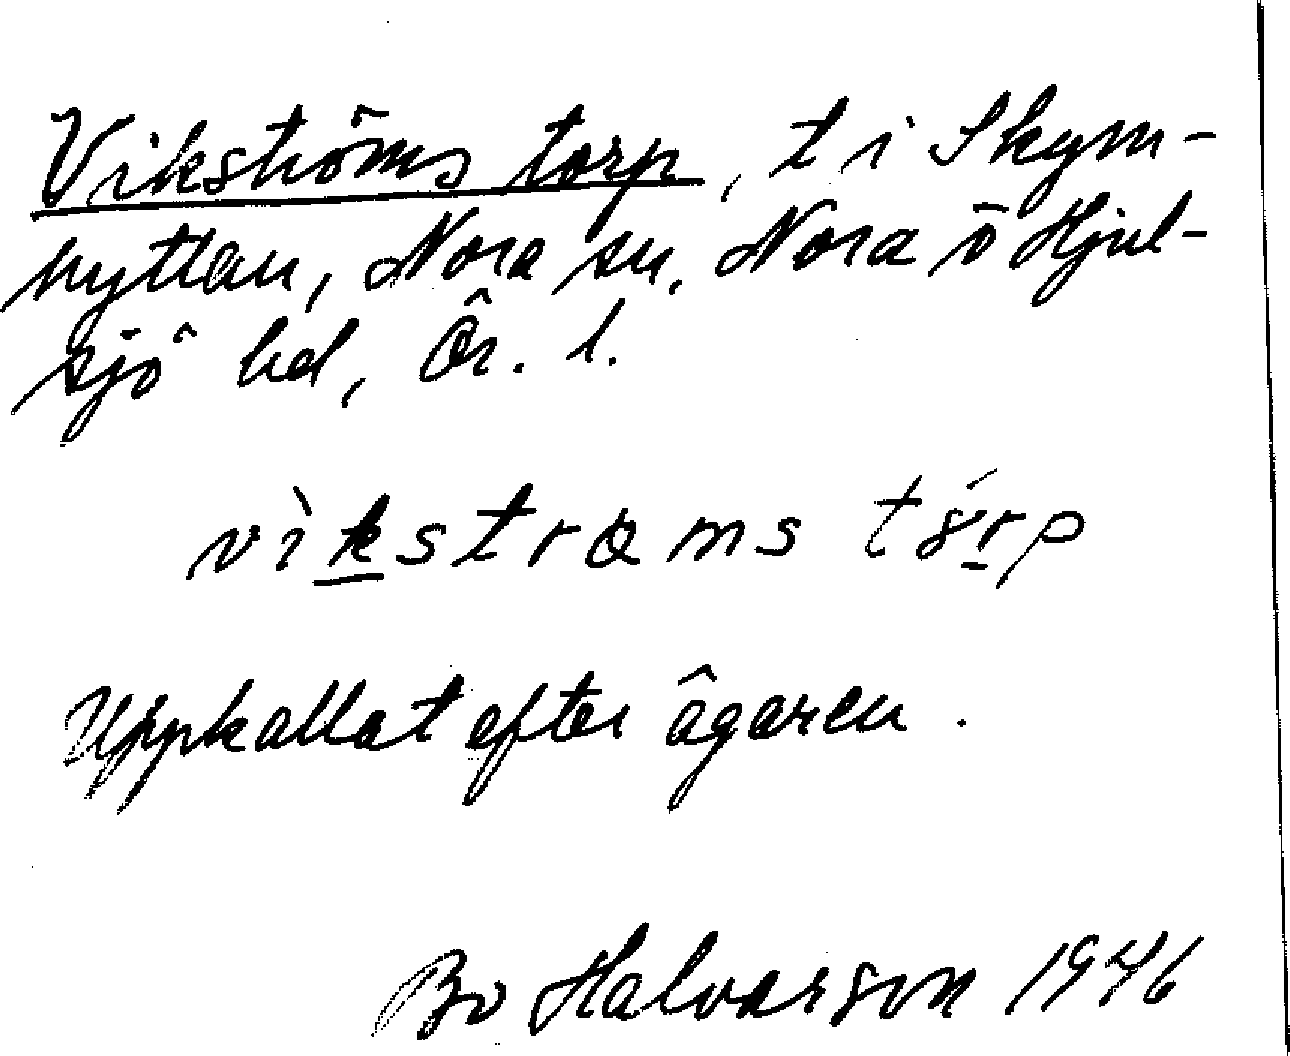 Vikströms torp, t i Skym-
hyttan, Nora sn, Nora ō Hjul-
sjö hd, Ör. l.
vìkstrɷms tórp
Uppkallat efter ägaren.
Bo Halvarson 1946